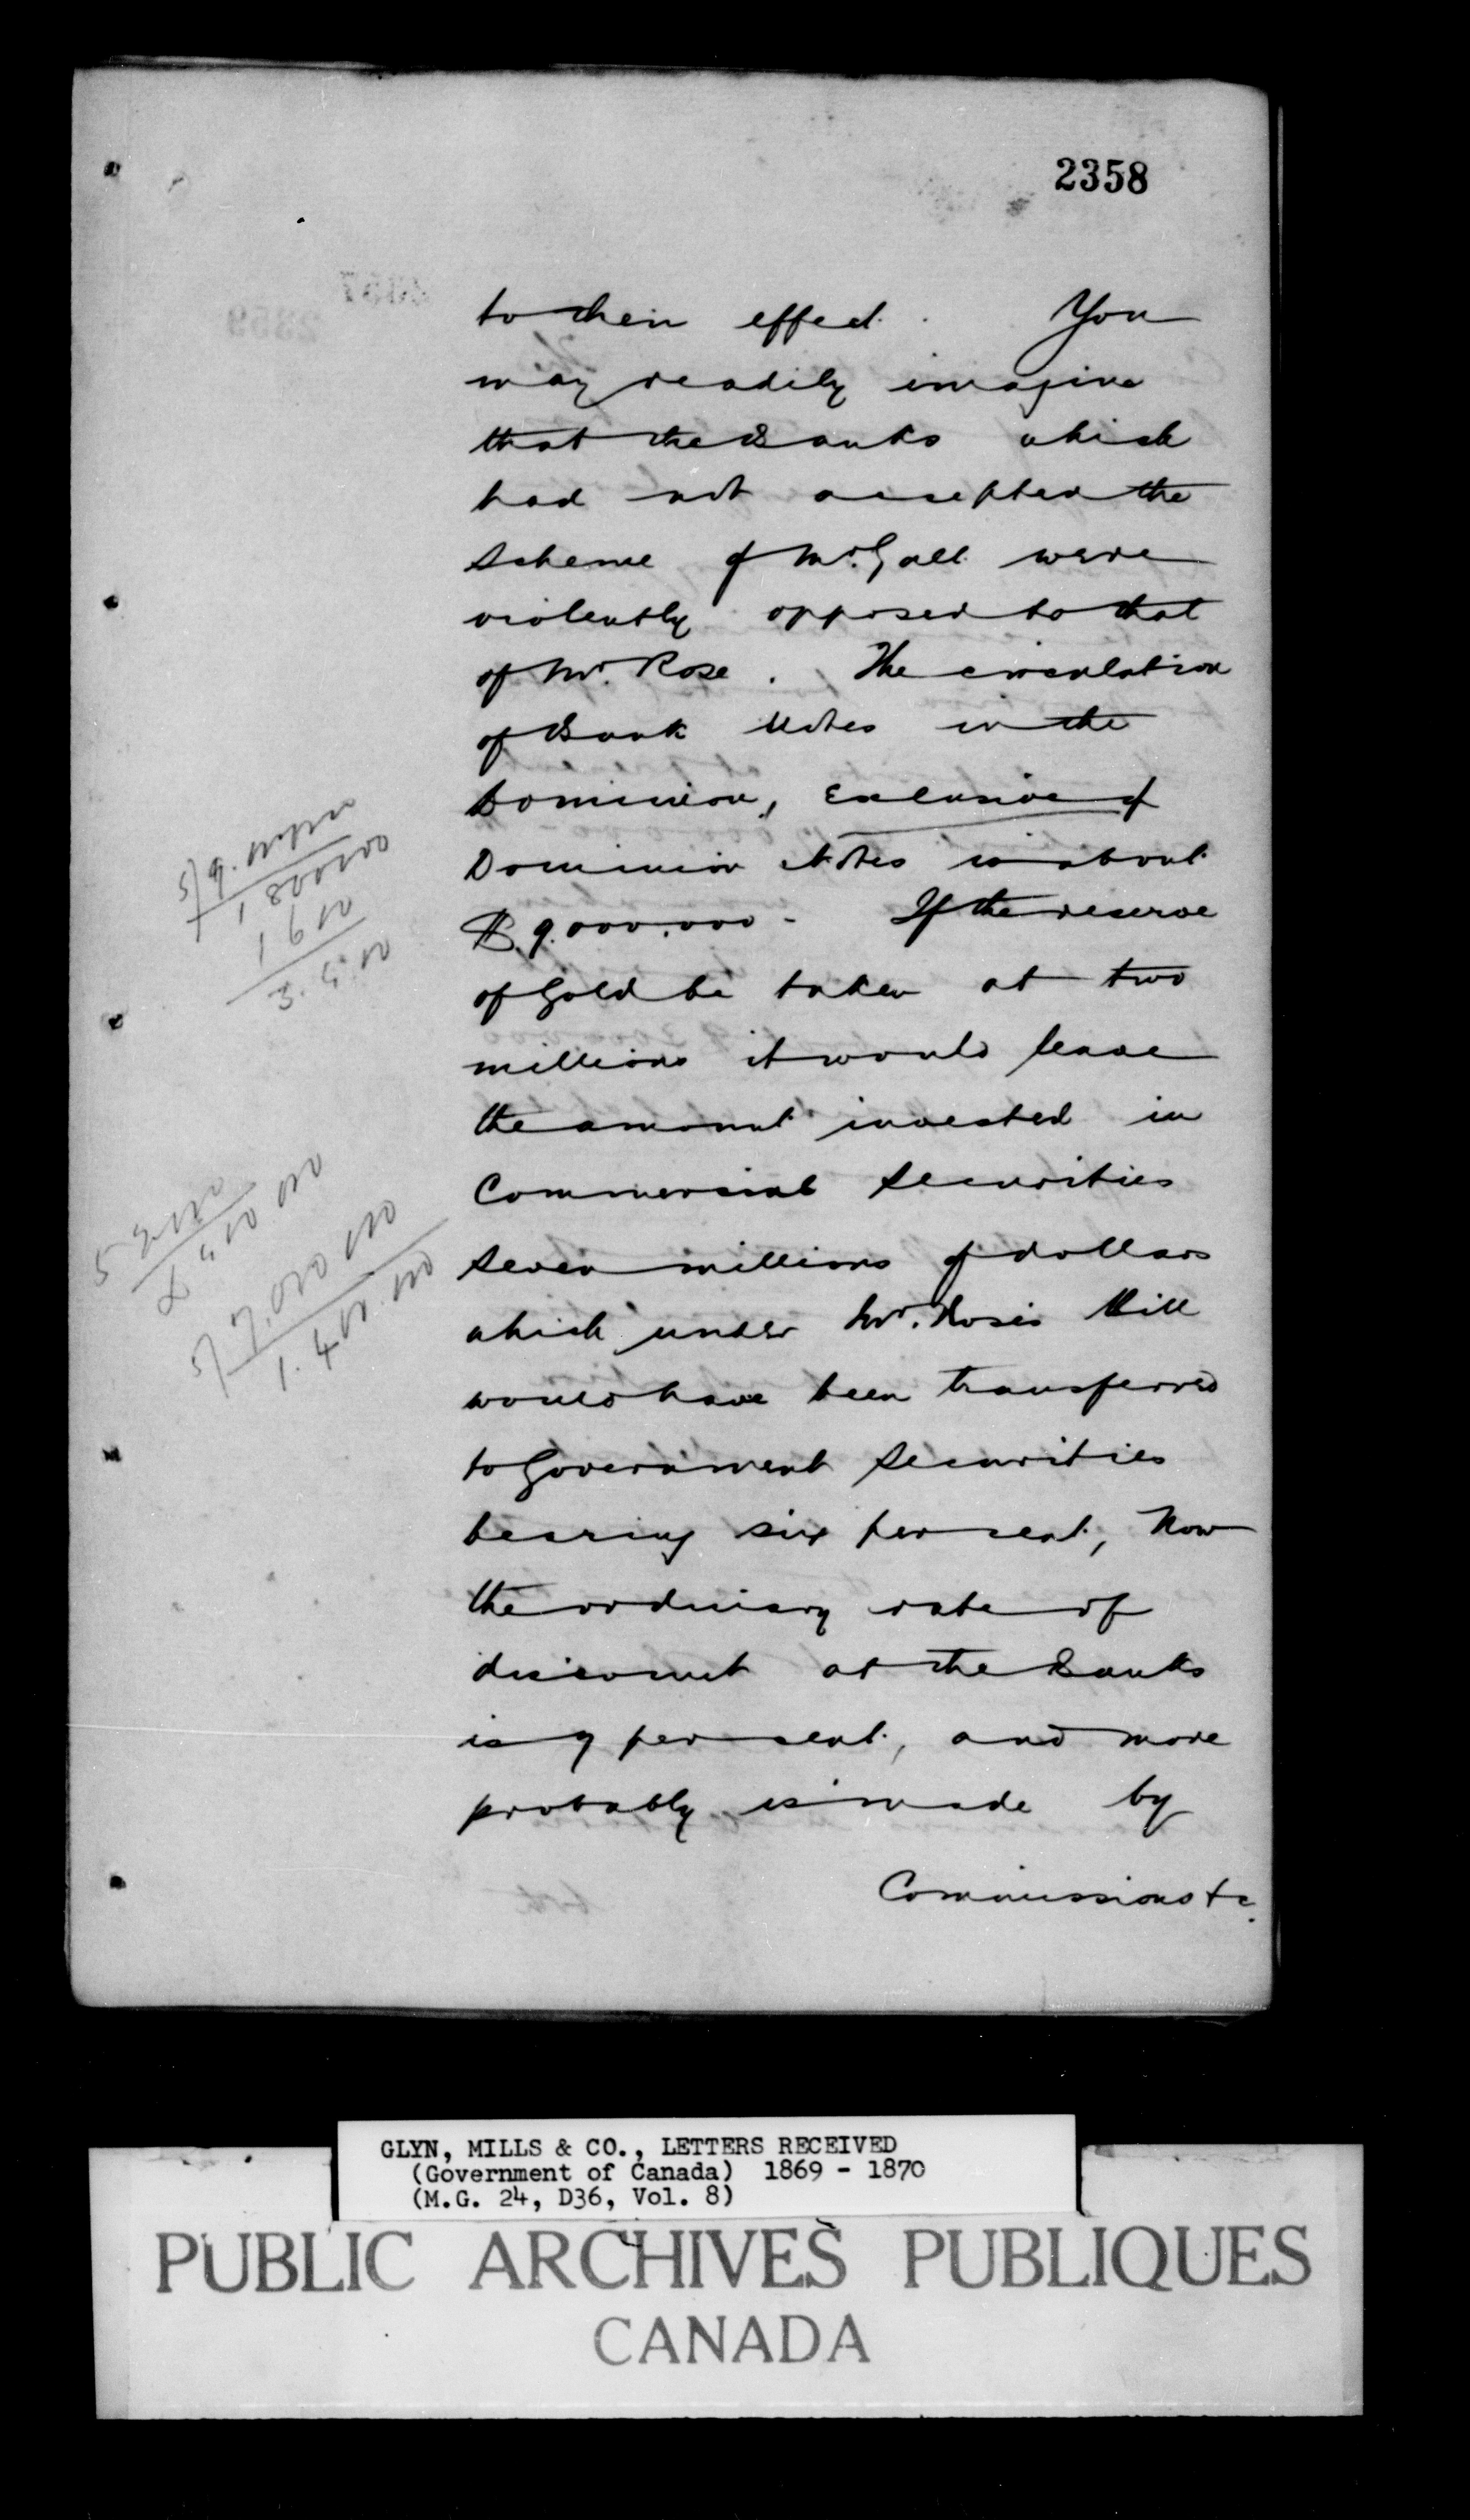 2358
to their effect. You
may readily imagine
that the Banks which
had not accepted the
Scheme of Mr. Galt were
violently opposed to that
of Mr. Rose. The circulation
of Bank Notes in the
Dominion, exclusive of
Dominion Notes is about
$9.000.000 - If the reserve
of Gold be taken at two
millions it would leave
the amount invested in
Commercial Securities
seven millions of dollars
which under Mr. Rose's Bill
would have been transferred
to Government Securities
bearing six per cent, Now
the ordinary rate of
discount at the Banks
is 7 per cent, and more
probably is made by
Commissions &c.
GLYN, MILLS & CO., LETTERS RECEIVED
(Government of Canada) 1869 - 1870
(M.G. 24, D36, Vol. 8)
PUBLIC ARCHIVES PUBLIQUES
CANADA